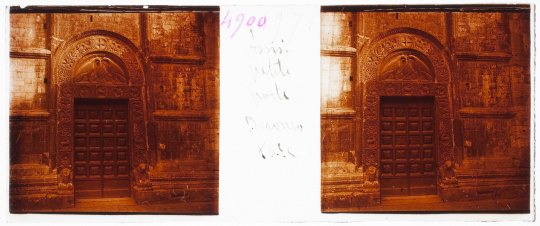 4900
Assisi
petite
porte
Duomo